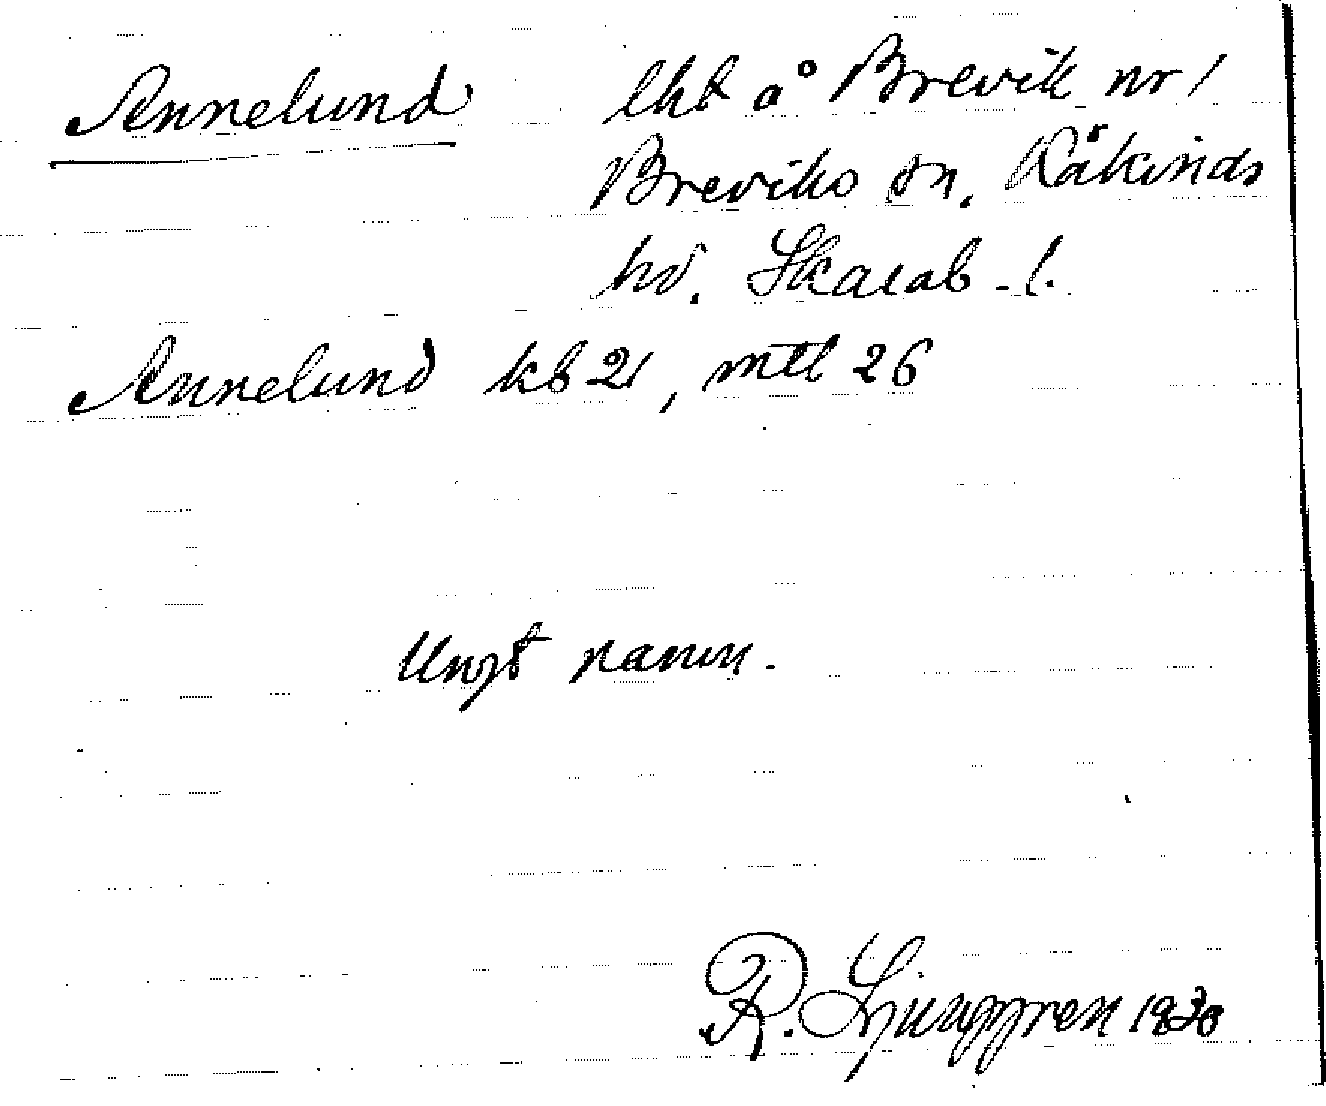 Annelund lht å Brevik nr 1
Breviks sn, Kåkinds
hd, Skarab. l.
Annelund kb 21, mtl 26
Ungt namn.
R. Ljunggren 1930